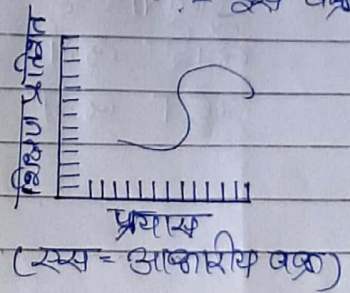 :- एस वक्र
शिक्षण प्रतिशत
प्रयास
(एस = आकारीय वक्र)